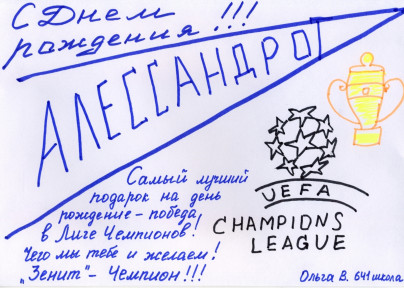 С Днем
рождения!!!
АЛЕССАНДРО!
Самый лучший
подарок на день
рождение - победа
в Лиге Чемпионов!
Чего мы тебе и желаем!
"Зенит" - Чемпион!!!
UEFA
CHAMPIONS
LEAGUE
Ольга В. 641 школа